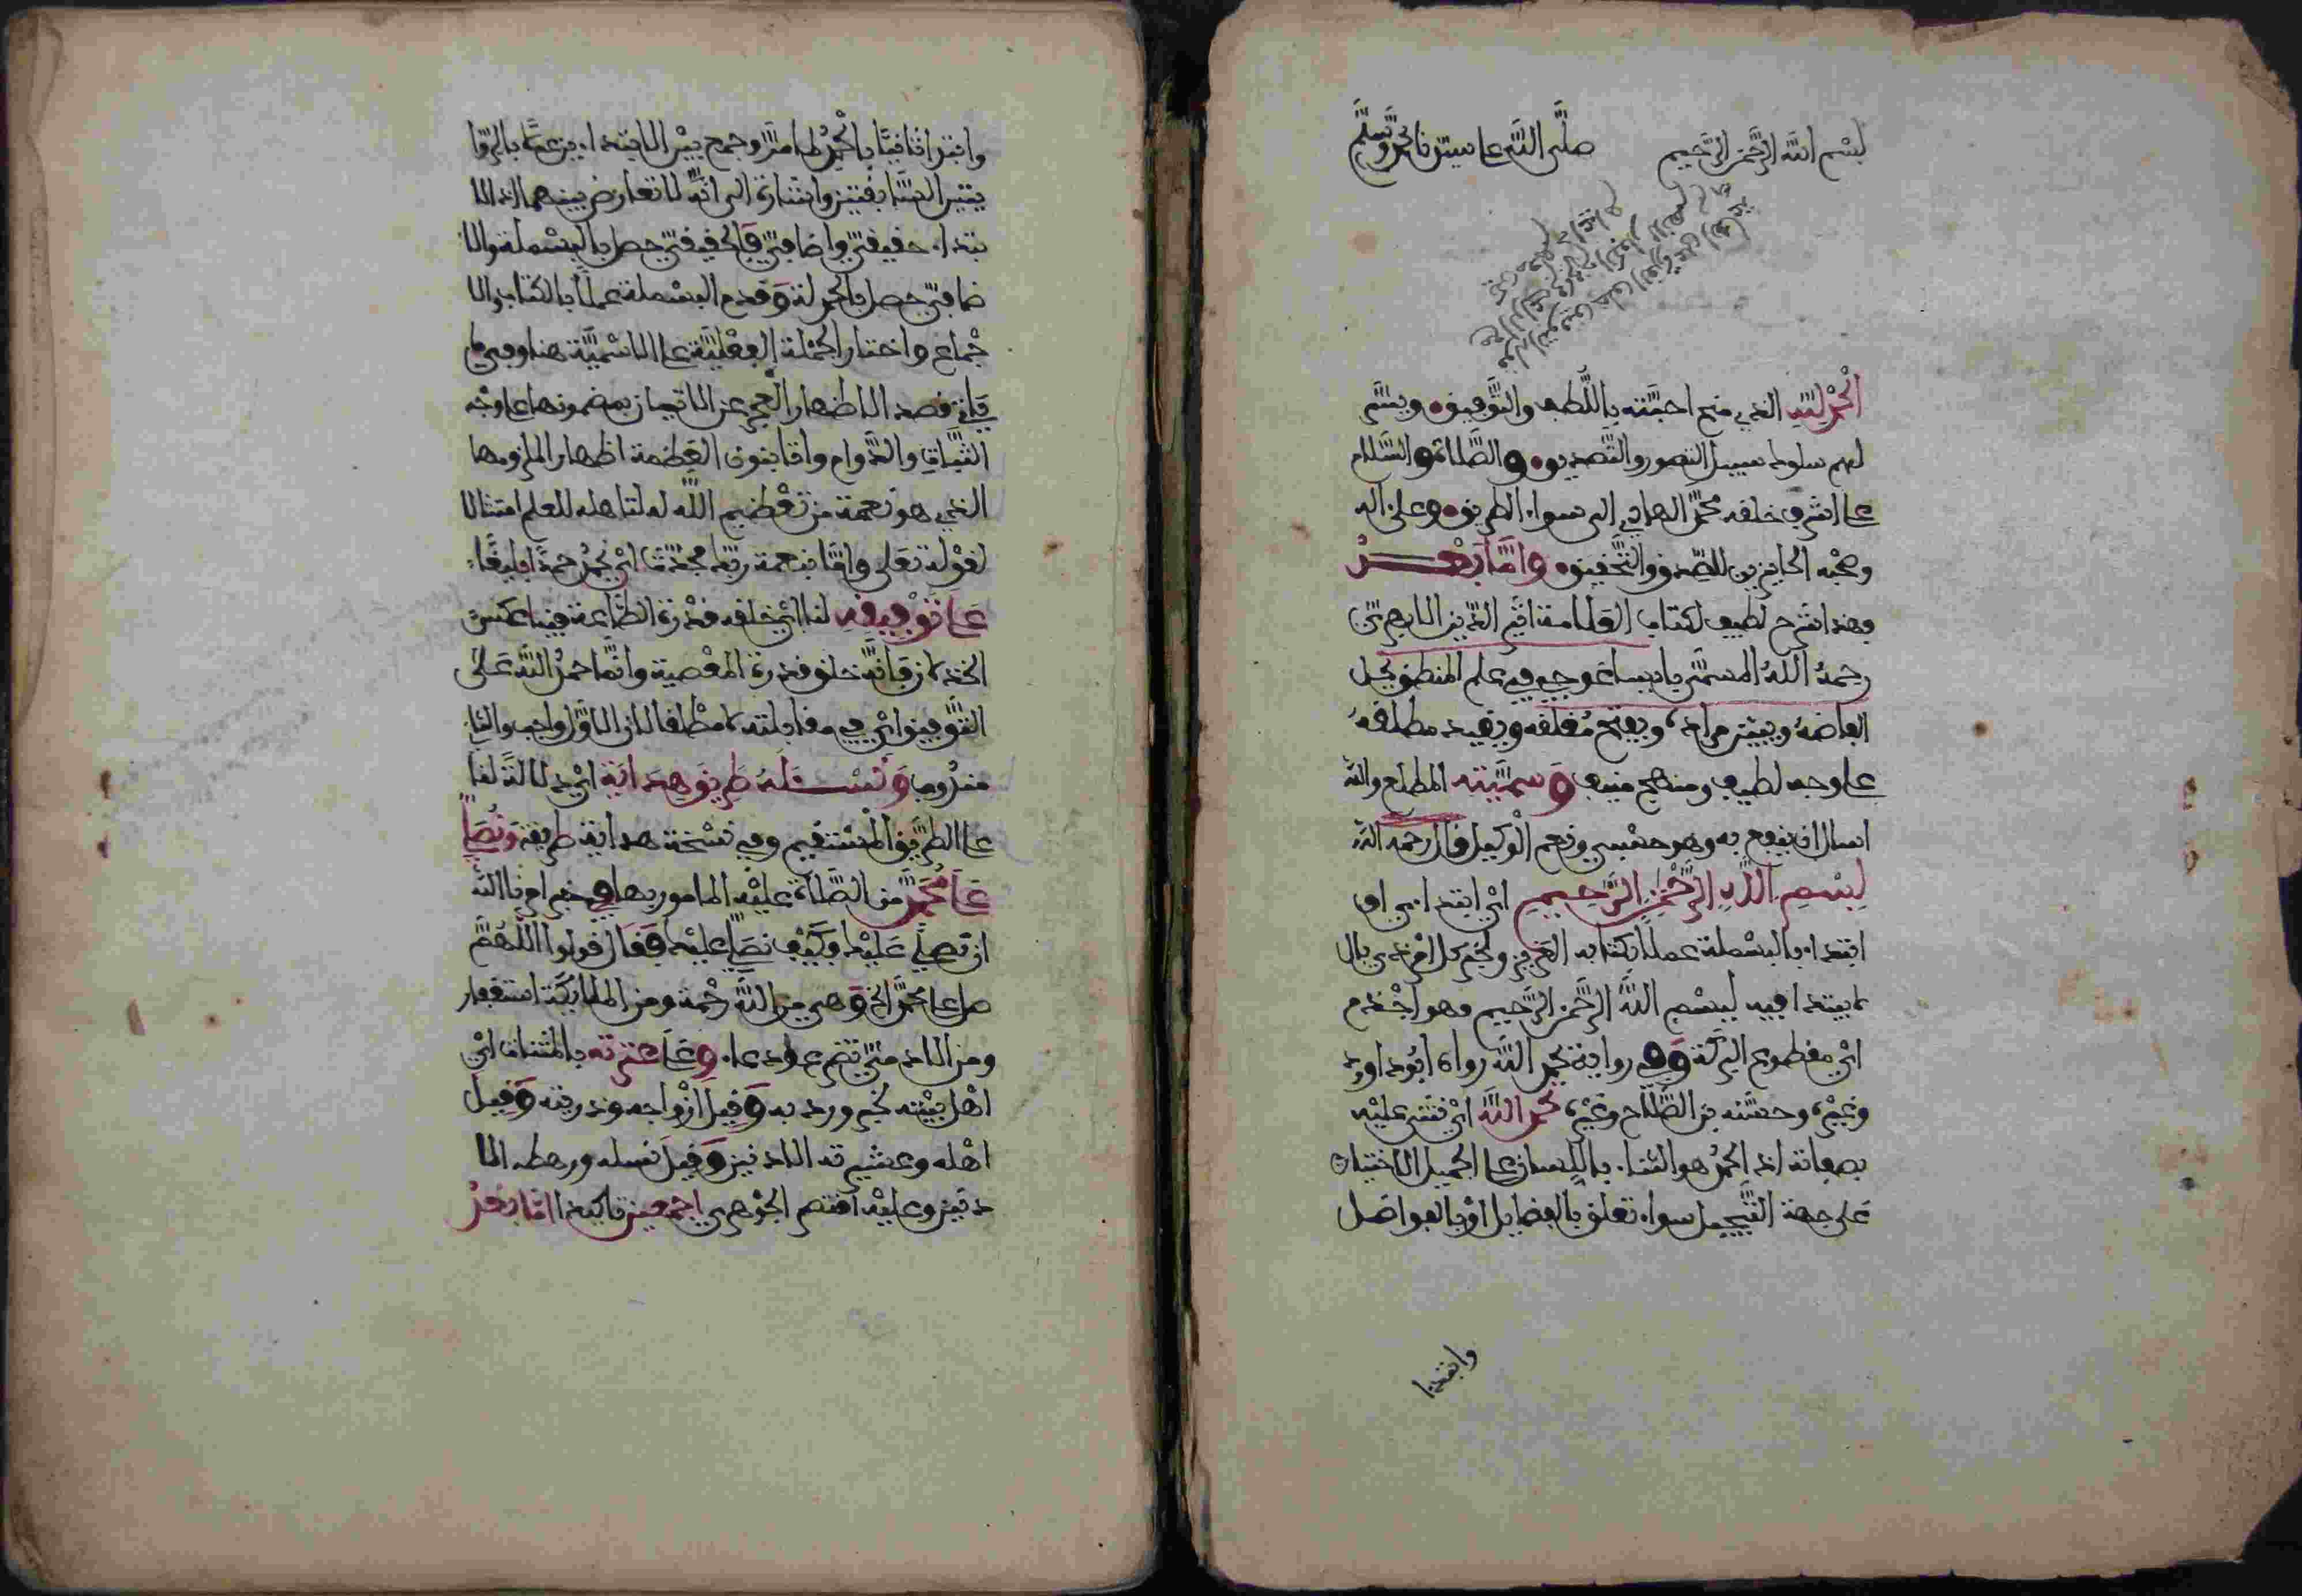 بسم الله الرحمن الرحيم صلى الله على سيدنا محمد وسلم
الحمد لله الذي منح احبته باللطف والتوفيق ويسر
لهم سلوك سبيل التصور والتصديق والصلاة والسلام
على اشرف خلقه محمد الهادي الى سواء الطريق وعلى اله
وصحبه الحايزين للصدق والتحقيق واما بعد
فهذا شرح لطيف لكتاب العلامة اثير الدين الابهري
رحمه الله المسمى بايساغوجي في علم المنطق يحل
الفاظه ويبين مراده ويفتح مغلقه ويقيد مطلقه
على وجه لطيف ومنهج منيف وسميته المطلع والله
اسال ان ينفع به وهو حسبي ونعم الوكيل قال رحمه الله
بسم الله الرحمن الرحيم اي ابتدائي او
ابتداء بالبسملة عملا بكتابه العزيز ولخبر كل امر ذي بال
لا يبتدا فيه ببسم الله الرحمن الرحيم فهو اجذم
اي مقطوع البركة وفي رواية بحمد الله رواه ابو داوود
وغيره وحسنه بن الصلاح وغيره نحمد الله اي نثني عليه
بصفاته اذ الحمد هو الثناء باللسان على الجميل الاختيار
على جهة التبجيل سواء تعلق بالفضايل او بالفواضل
وابتدا
وابتدا ثانيا بالحمد لما مر وجمع بين الابتداءين عملا بالروا
يتين السابقتين واشارة الى انه لا تعارض بينهما اذ الا
بتداء حقيقي واضافي فالحقيقي حصل بالبسملة والا
ضافي حصل بالحمدلة وقدم البسملة عملا بالكتاب والا
جماع واختار الجملة الفعلية على الاسمية هنا وفيما
ياتي قصد الاظهار العجز عن الاتيان بمضمونها على وجه
الثبات والدوام واتا بنون العظمة اظهار الملزومها
الذي هو نعمة من تعظيم الله له لتاهله للعلم امتثالا
لقوله تعلى واما بنعمة ربك فحدث اي نحمد حمدا بليغا
على توفيقه لنا اي خلقه قدرة الطاعة فينا عكس
الخذلان فانه خلق قدرة المعصية وانما حمد الله على
التوفيق اي في مقابلته لا مطلقا لان الاول واجب والثا
مندوب ونسئله طريق هداية اي دلالة لنا
على الطريق المستقيم وفي نسخة هداية طريقه ونصلي
على محمد من الصلاة عليه المامور بها في خبر امرنا الله
ان نصلي عليك فكيف نصلي عليك فقال قولوا اللهم
صل على محمد الخ وهي من الله رحمة ومن الملائكة استغفار
ومن الادميين تضرع ودعاء وعلى عترته بالمثناة اي
اهل بيته لخبر ورد به وقيل ازواجه وذريته وقيل
اهله وعشيرته الادنين وقيل نسله ورهطه الا
دنين وعليه اقتصر الجوهري اجمعين تاكيد اما بعد